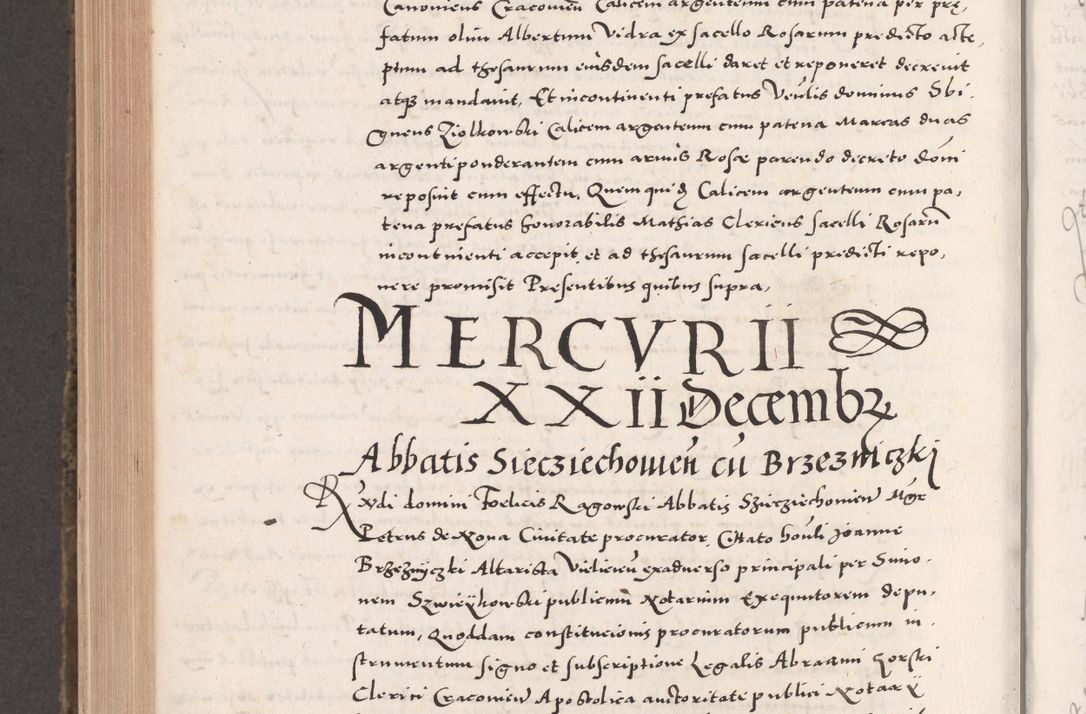 Canonicus Cracovieñ Calicem argenteum cum patena per prę,
fatum olim Albertum Vidra ex sacello Rosarum predicto acce,
ptum ad thesaurum eiusdem sacelli daret et reponeret decrevit
atq3 mandavit, Et incontinenti prefatus Veñlis dominus Sbi-
gneus Ziolkowski Calicem argenteum cum patena Marcas duas
argenti ponderantem cum armis Rosæ parendo decreto dom̃i
reposuit cum effectu, Quem quidẽ Calicem argenteum cum pa,
tena prefatus honorabilis Mathias Clericus sacelli Rosarũ
incontinenti accepit et ad thesaurum sacelli predicti repo,
nere promisit Presentibus quibus supra,
MERCVRII
XXII Decembr
Abbatis Siecziechowieñ cũ Brzezniczki
Rñdi domini Foelicis Ragowski Abbatis Szieziechowieñ Mgr
Petrus de Xona Civitate procurator, Citato hoñli Joanne
Brzeznyczki Altarista Vielicieñ ex adverso principali per Simo-
nem Szwieykowski publicum Notarium Exequutorem depu,
tatum, Quoddam constitucionis procuratorum publicum in-
strumentum signo et subscriptione Legalis Abraami Gorski
Clerici Cracovieñ Apostolica auctoritate publici Notarÿ